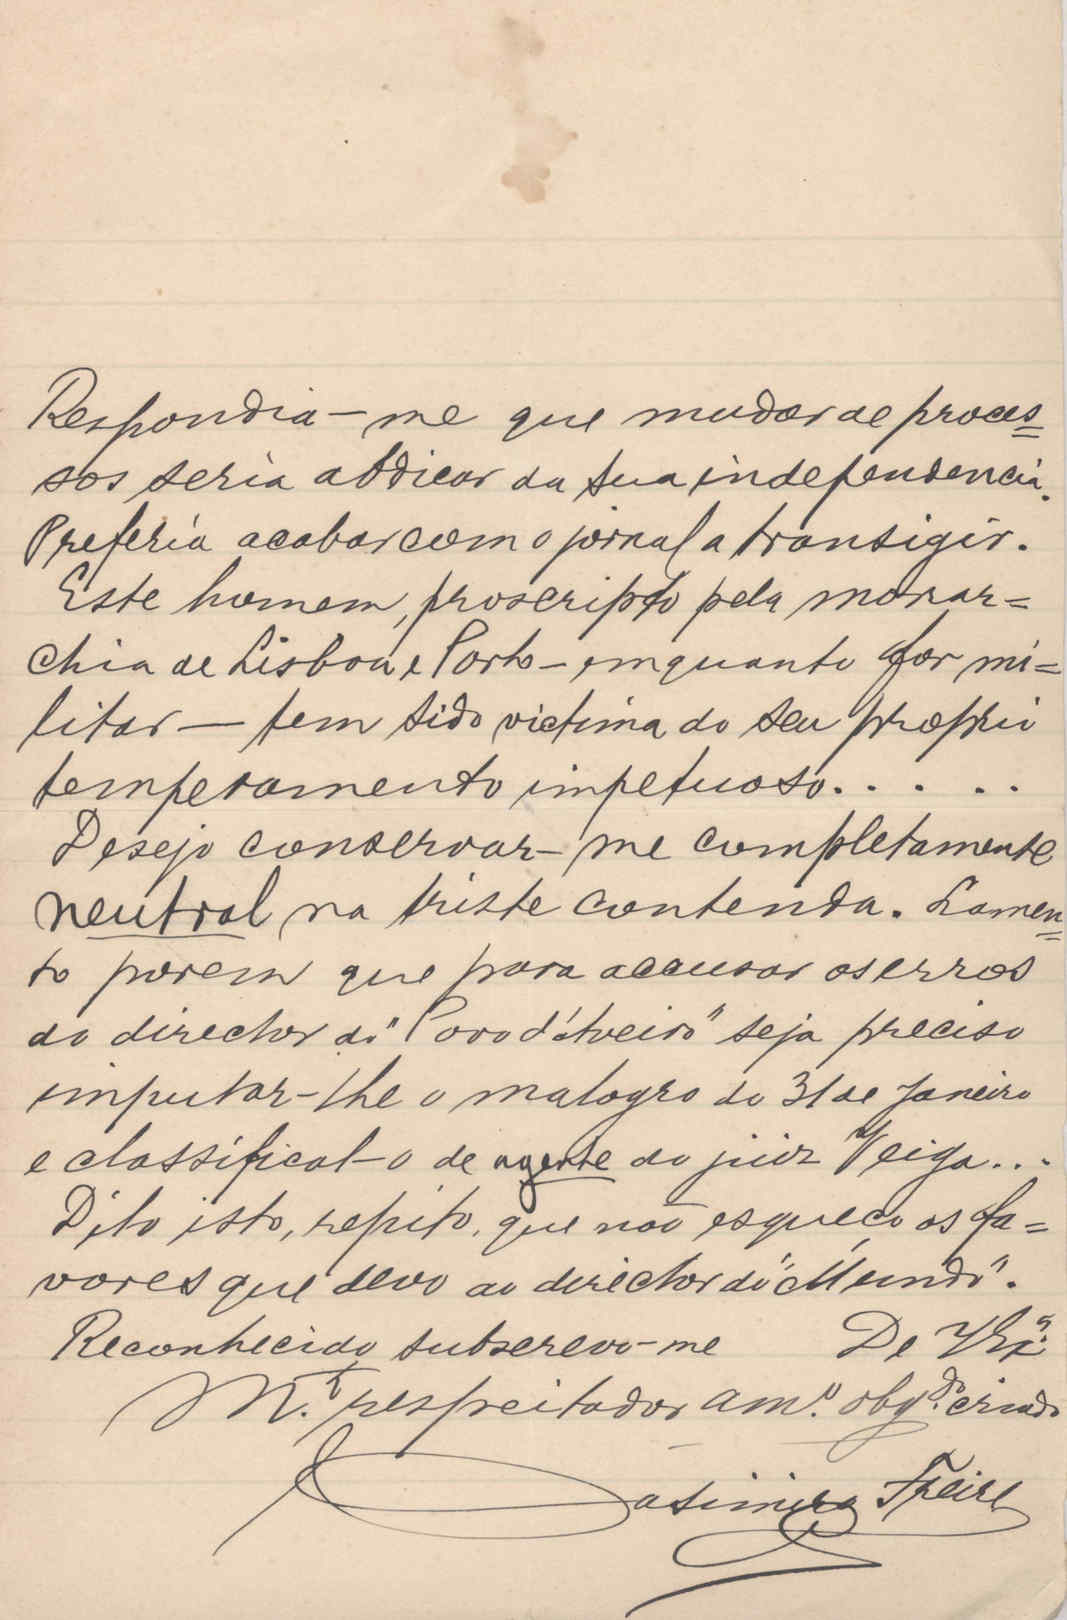 Respondia-me que mudar de proces=
sos seria abdicar da sua independencia.
Preferia acabar com o jornal a transigir.
Este homem, proscripto pela monar=
chia de Lisboa e Porto - emquanto for mi=
litar - tem sido victima do seu proprio
temperamento impetuoso. . . . .
Desejo conservar-me completamente
neutral na triste contenda. Lamen=
to porem que para accusar os erros
do director do "Povo d'Aveiro" seja preciso
imputar-lhe o malogro do 31 de Janeiro
e classifical-o de agente do juiz Veiga...
Dito isto, repito, que não esqueço os fa=
vores que devo ao director do "Mundo".
Reconhecido subscrevo-me De V. Ex.ª
M.to respeitador am.º obg.do criado
Casimiro Freire